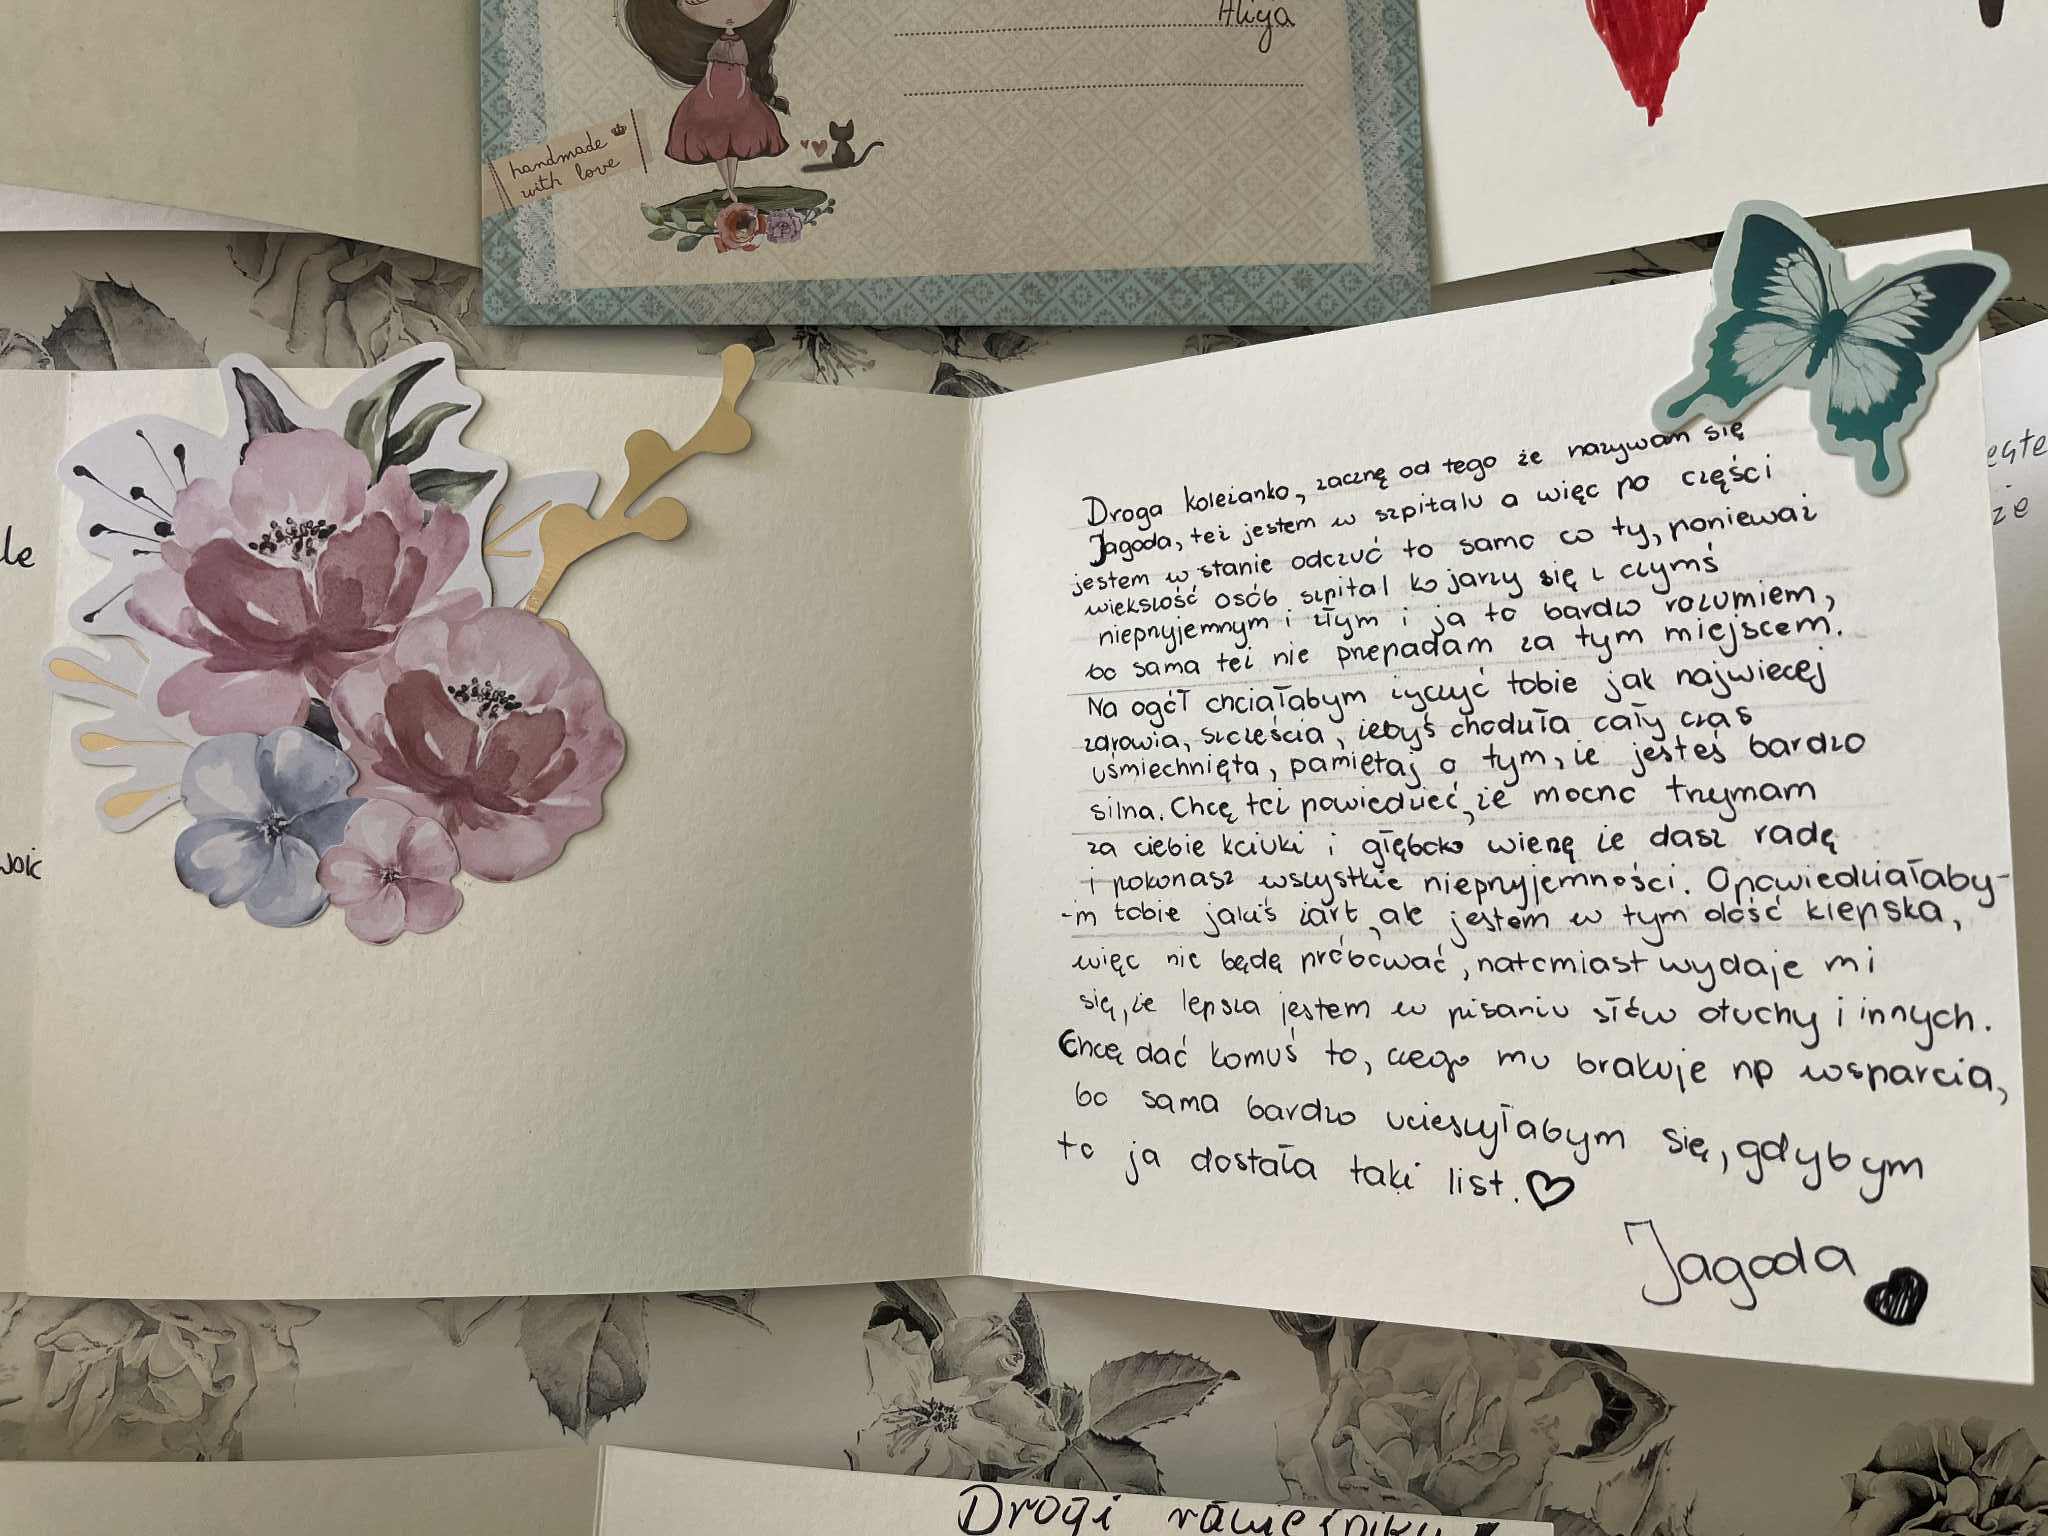 Alicja
handmade
with love
Droga koleżanko, zacznę od tego że nazywam się
Jagoda, też jestem w szpitalu a więc po części
jestem w stanie odczuć to samo co ty, ponieważ
większość osób szpital kojarzy się z czymś
nieprzyjemnym i złym i ja to bardzo rozumiem,
bo sama też nie przepadam za tym miejscem.
Na ogół chciałabym życzyć tobie jak najwięcej
zdrowia, szczęścia, żebyś chodziła cały czas
uśmiechnięta, pamiętaj o tym, że jesteś bardzo
silna. Chcę też powiedzieć, że mocno trzymam
za ciebie kciuki i głęboko wierzę że dasz radę
i pokonasz wszystkie nieprzyjemności. Opowiedziałaby-
-m tobie jakiś żart, ale jestem w tym dość kiepska,
więc nie będę próbować, natomiast wydaje mi
się, że lepsza jestem w pisaniu słów otuchy i innych.
Chcę dać komuś to, czego mu brakuje np wsparcia,
bo sama bardzo ucieszyłabym się, gdybym
to ja dostała taki list.
Jagoda
Drogi rówieśniku